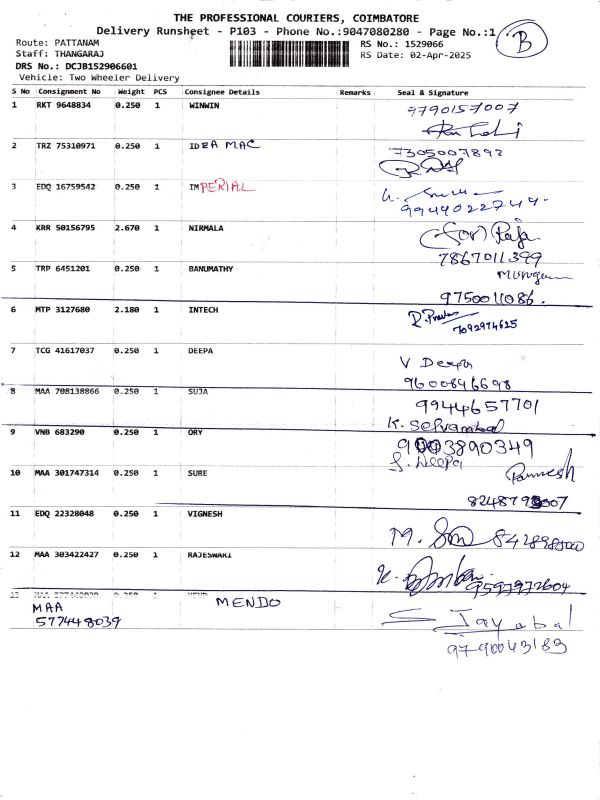 THE PROFESSIONAL COURIERS, COIMBATORE
Delivery Runsheet - P103 - Phone No.:9047080280 - Page No.:1
B
Route: PATTANAM
RS No.: 1529066
Staff: THANGARAJ
RS Date: 02-Apr-2025
DRS No.: DCJB152906601
Vehicle: Two Wheeler Delivery
S No Consignment No Weight PCS Consignee Details Remarks Seal & Signature
1 RKT 9648834 0.250 1 WINWIN 9790157007
2 TRZ 75310971 0.250 1 IDEA MAC 7305007892
3 EDQ 16759542 0.250 1 IMPERIAL
9944022744
4 KRR 50156795 2.670 1 NIRMALA (for) Raja
7867011399
5 TRP 6451201 0.250 1 BANUMATHY Murugan
9750011086.
6 MTP 3127680 2.180 1 INTECH
7092974625
7 TCG 41617037 0.250 1 DEEPA V Deepa
9600846698
8 MAA 708138866 0.250 1 SUJA 9944657701
K. Selvambal
9 VNB 683290 0.250 1 ORY 9003890349
S. Deepa
10 MAA 301747314 0.250 1 SURE
11 EDQ 22328048 0.250 1 VIGNESH M.
12 MAA 303422427 0.250 1 RAJESWARI K.
9597972604
13 MAA 577448039 0.250 1 MENDO
MAA
577448039
S Jayabal
9790043183